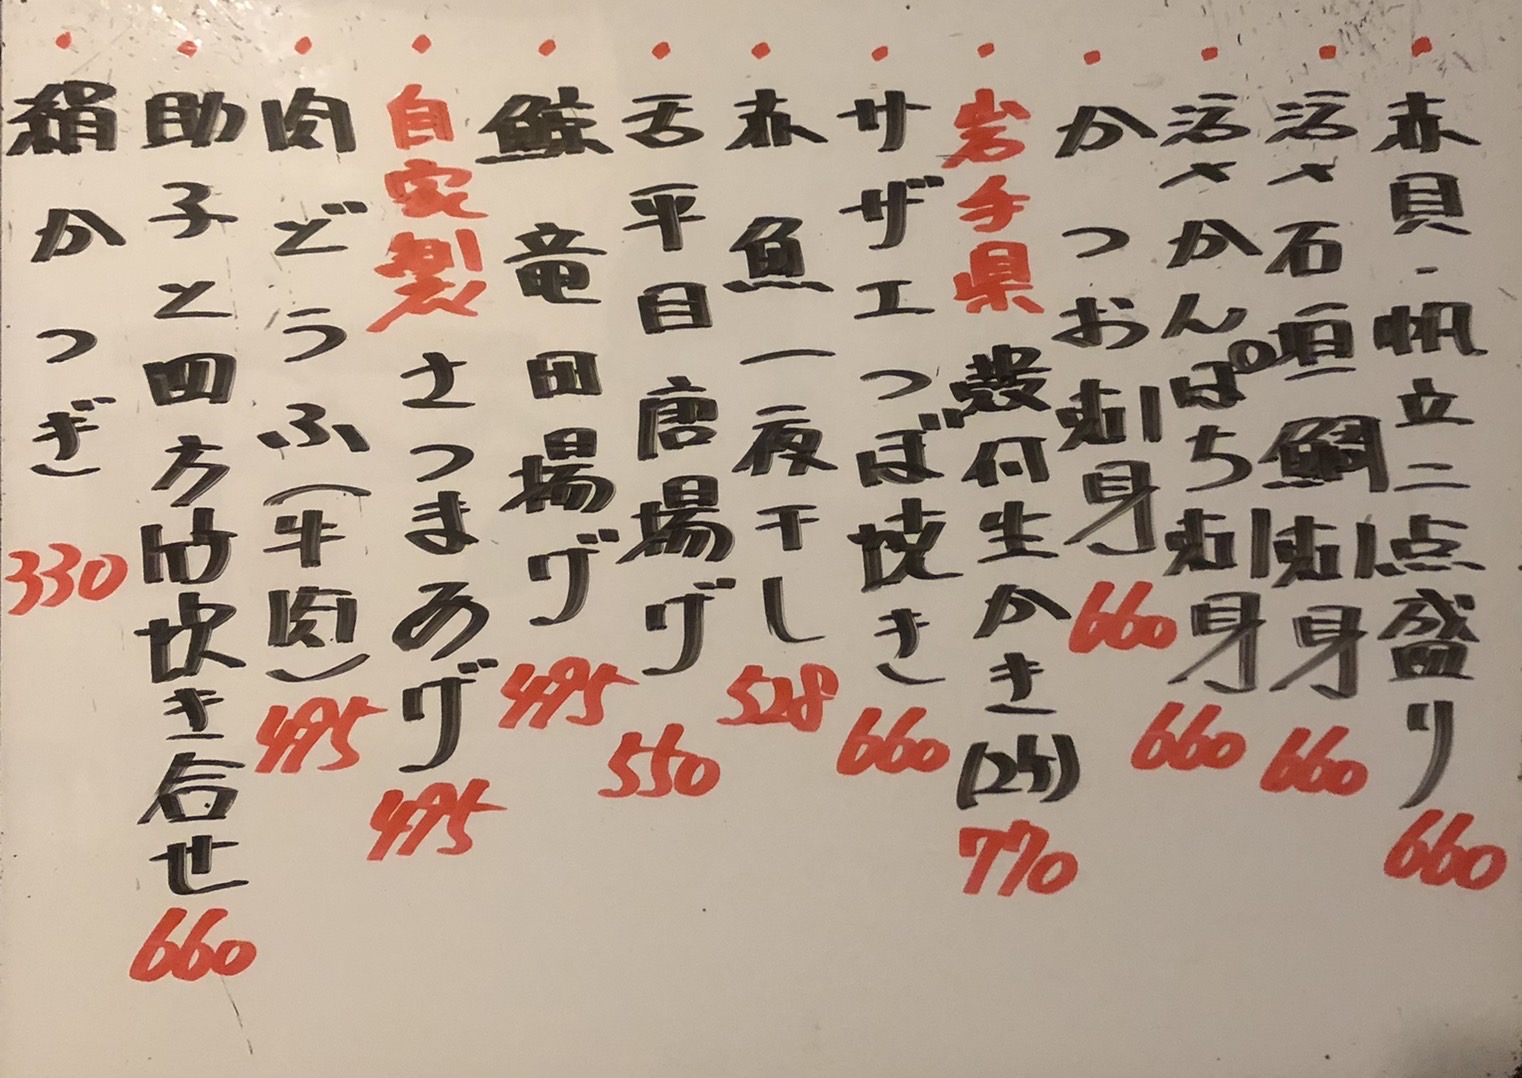 ・赤貝・帆立二点盛り 660
・活〆石垣鯛刺身 660
・活〆かんぱち刺身 660
・かつお刺身 660
・岩手県 殻付生かき(2ケ) 770
・サザエつぼ焼き 660
・赤魚一夜干し 528
・舌平目唐揚げ 550
・鯨竜田揚げ 495
・自家製 さつまあげ 495
・肉どうふ(牛肉) 495
・助子と四方竹炊き合せ 660
・絹かつぎ 330